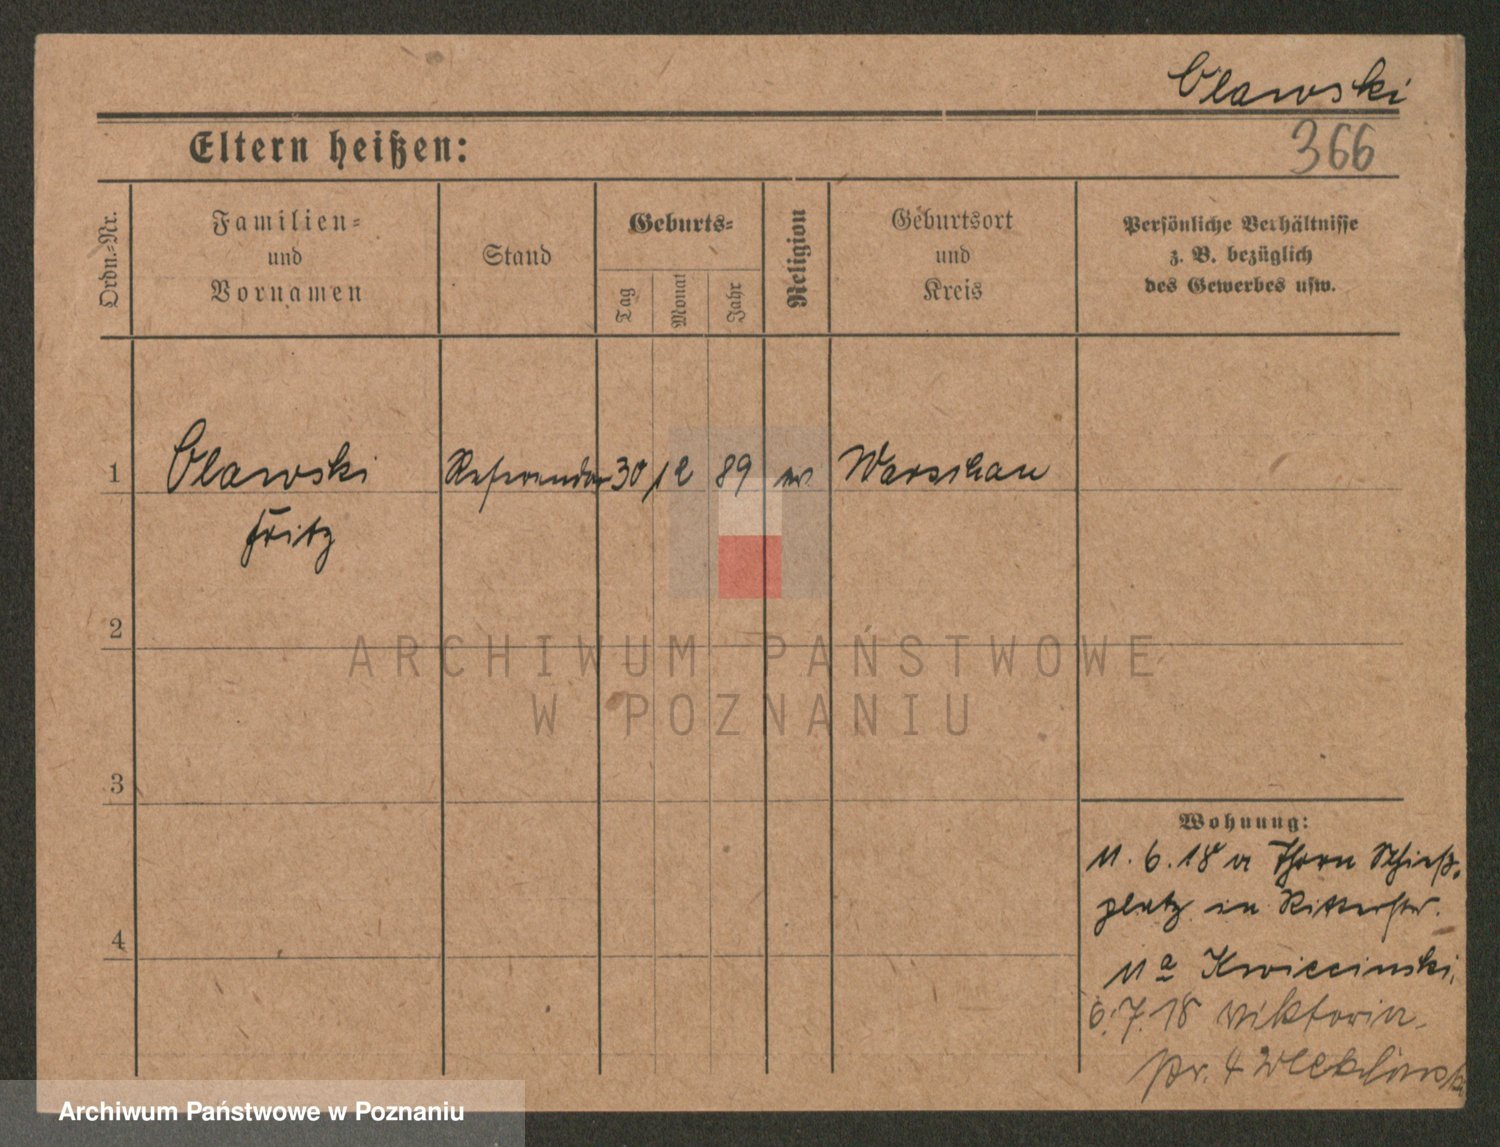 Olawski
Eltern heißen:
366
Ordn.-Nr.
Familien-
und
Vornamen
Stand
Geburts-
Tag
Monat
Jahr
Religion
Geburtsort
und
Kreis
Persönliche Verhältnisse
z. B. bezüglich
des Gewerbes usw.
1 Olawski Referendar 30 12 89 ev. Warschau
Fritz
2
3
4
ARCHIWUM PAŃSTWOWE
W POZNANIU
Wohnung:
11. 6. 18 a Thorn Schieß-
platz in Ritterstr.
11 a Kwiecinski,
6. 7. 18 Viktoria-
str. 4
Archiwum Państwowe w Poznaniu